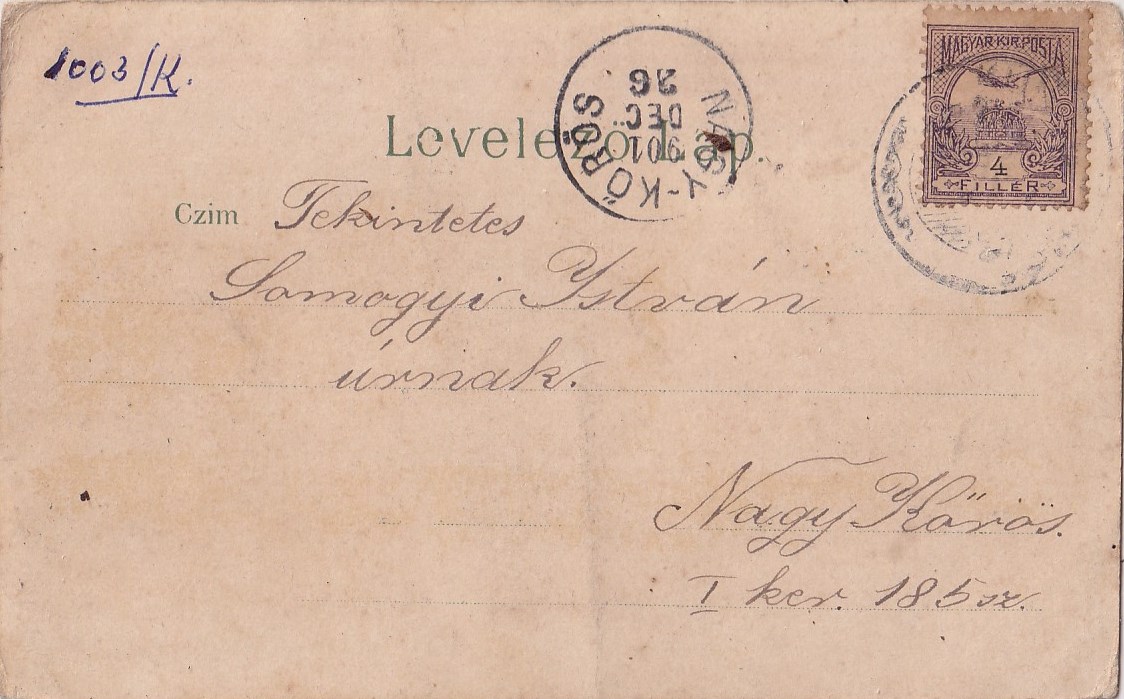 1003/K.
MAGYAR KIR. POSTA
4
FILLÉR
NAGY-KŐRÖS
901
DEC
26
Levelező Lap.
Czim Tekintetes
Somogyi István
úrnak.
Nagy Kőrös.
I ker. 185 sz.